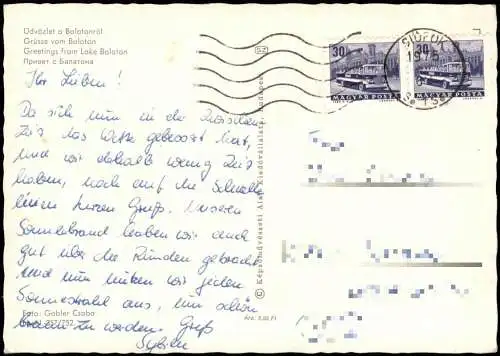 Üdvözlet a Balatonról
Grüsse vom Balaton
Greetings from Lake Balaton
Привет с Балатона
Ihr Lieben!
Da sich nun in der Zwischen-
zeit das Wetter gebessert hat,
und wir deshalb wenig Zeit
haben, noch auf die Schnelle
einen kurzen Gruß. Unseren
Sonnenbrand haben wir auch
gut über die Runden gebracht
und nun nützen wir jeden
Sonnenstrahl aus, um schön
braun zu werden. Gruß
Sylvia
Foto: Gabler Csaba
Ára: 3,60 Ft
© Képzőművészeti Alap Kiadóvállalata, Budapest
SZ
30f
MAGYAR POSTA
30f
MAGYAR POSTA
SIÓFOK